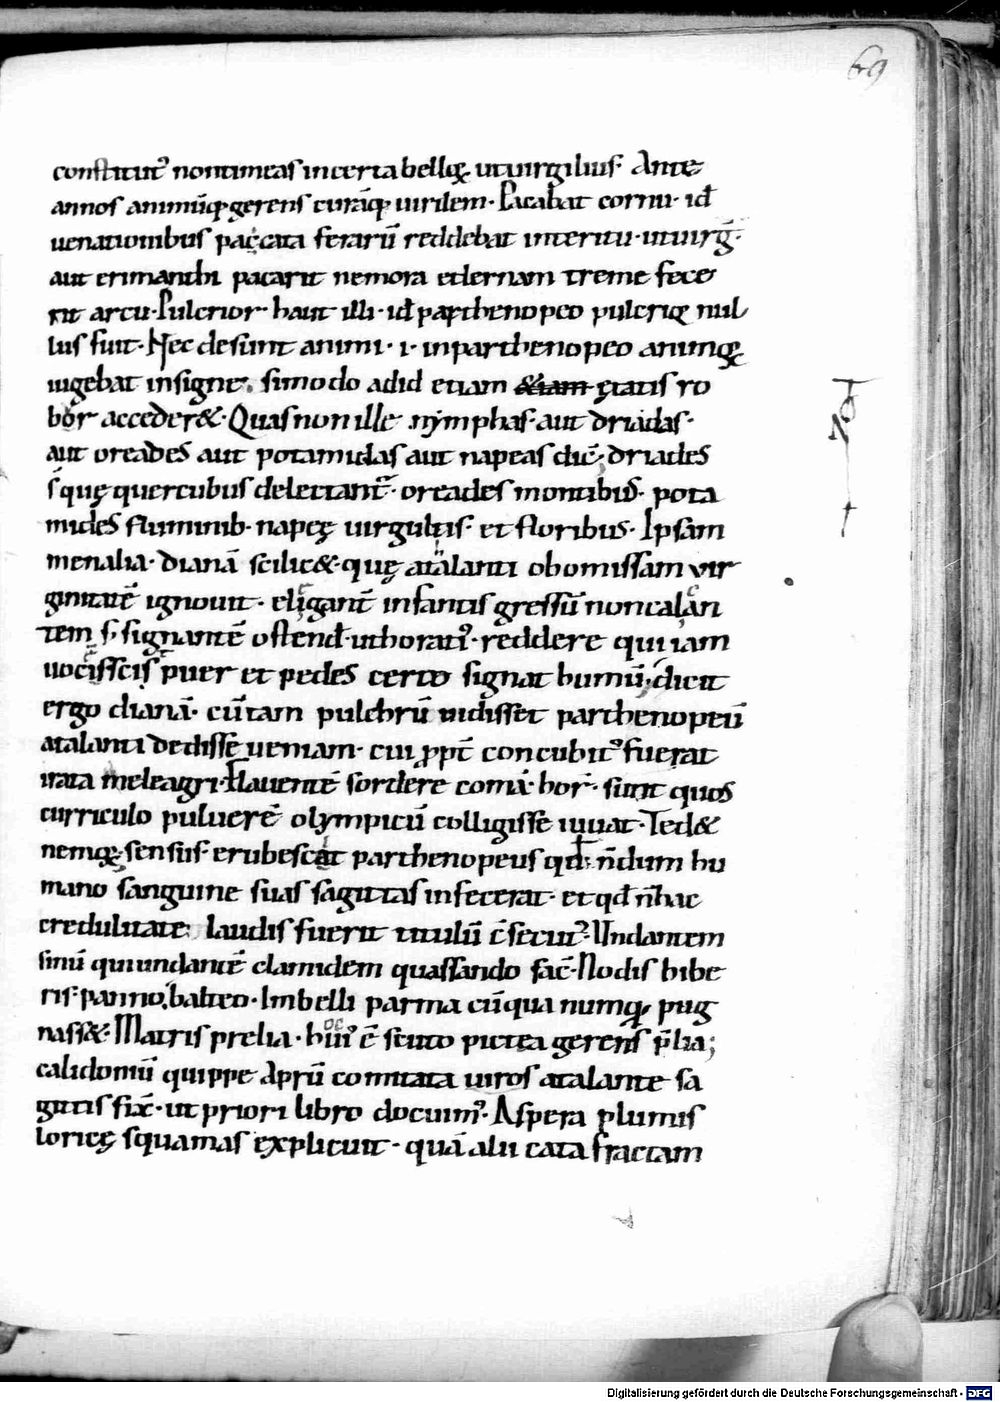 69
constitut᾿ non timeas incerta bellorꝫ ut uirgilius· Ante
annos animūq; gerens curāq; uirilem· Pacabat cornu· id̄
uenationibus paccata ferarū reddebat interitu· ut uirḡ·
aut erimanthi pacarit nemora et lernam treme fece
rit arcu· Pulcrior· haut illi· id̄ parthenopeo pulcriorꝫ nul
lus fuit· Nec desunt animi· i· in parthenopeo animꝰ
uigebat insigne, si modo adid etiam etiam ętatis ro
bor acceder&· Quas non ille nymphas· aut driadas·
aut oreades aut potamidas aut napeas dic̄; driades
s̄ quę quercubus delectant᾿· oreades montibus· pota
mides fluminib· napeę uirgultis· et floribus· Ipsam
menalia· dianā scilic&· quę atalanti ob omissam uir
ginitatē ignouit· eligantē infantis gressū non calcan
tem s· signantē ostend̄· ut horati᾿· reddere qui iam
uoces scis puer et pedes certo signat humū; dicit
ergo dianā· cū tam pulchrū uidisset parthenopeū
atalanti dedisse ueniam· cui ꝓpt̄ concubit᾿ fuerat
irata meleagri· Flauentē sordere comā· hor̄· sunt quos
curriculo puluerē olympicū colligisse iuuat· Ted&
nemorꝫ· sensus· erubescit parthenopeus qd̄ n̄dum hu
mano sanguine suas sagittas infecerat· et qd̄ n̄ hac
credulitate laudis fuerit titulū c̄secut᾿· Undantem
sinū qui undantē clamidem quassando fac̄· Nodis hibe
ris· panno, balteo· Imbelli parma cū qua numq; pug
nass&· Matris prelia· hui᾿ ē scuto pictea gerens p̄lia;
calidoniū quippe Aprū comitata uiros atalante sa
gittis fix̄· ut priori libro docuim᾿· Aspera plumis
loricę squamas explicuit· quā alii catafractam
Digitalisierung gefördert durch die Deutsche Forschungsgemeinschaft - DFG